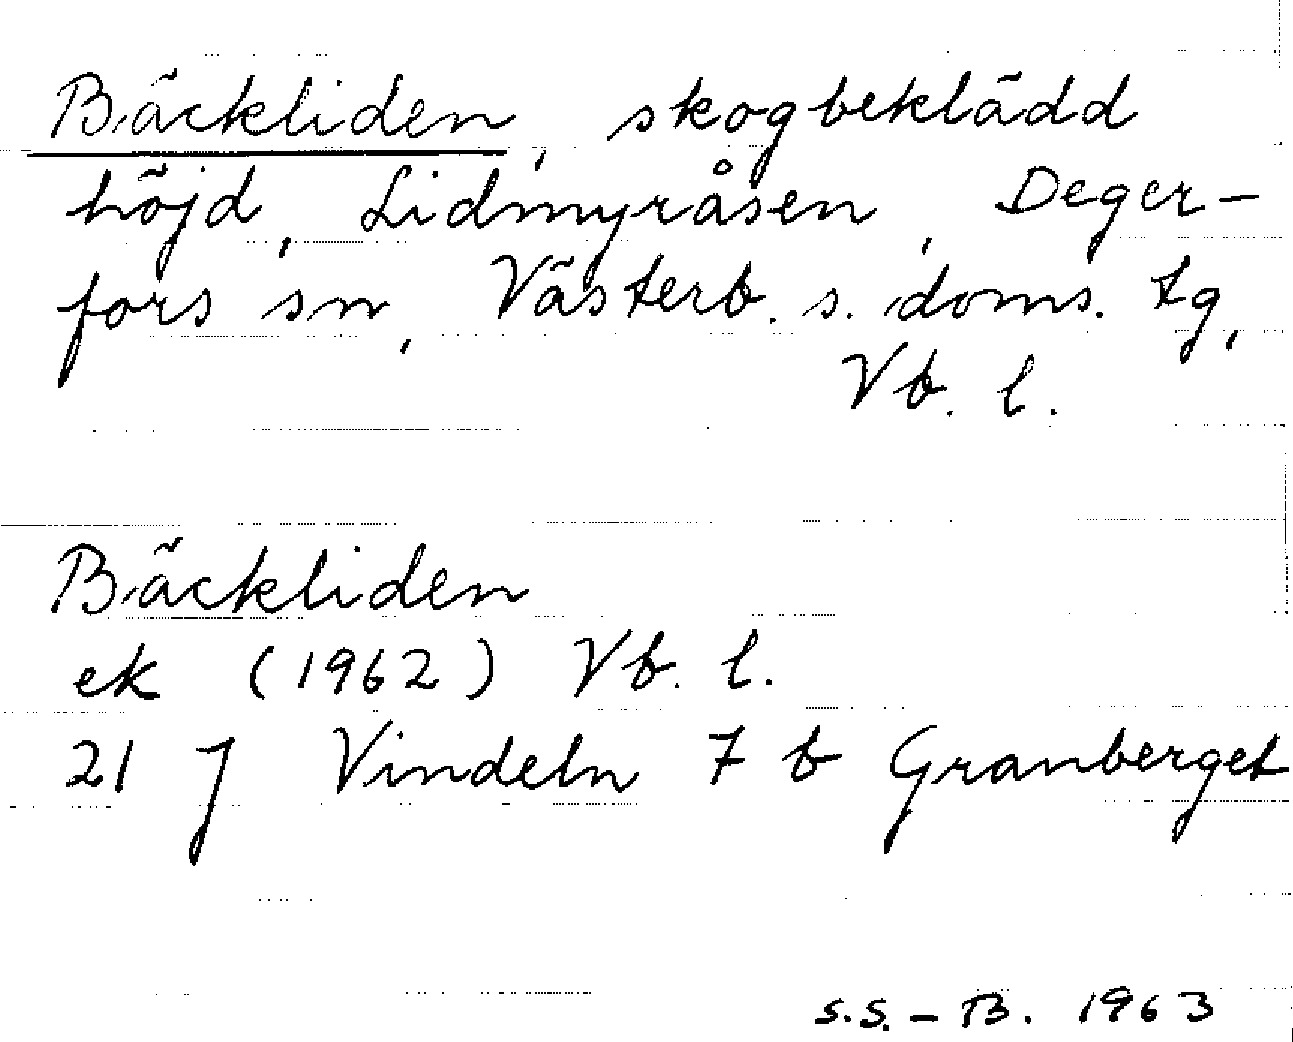 Bäckliden, skogbeklädd
höjd, Lidmyråsen, Deger-
fors sn, Västerb. s. doms. tg,
Vb. l.
Bäckliden
ek (1962) Vb. l.
21 J Vindeln 7 b Granberget
S.S. - B. 1963